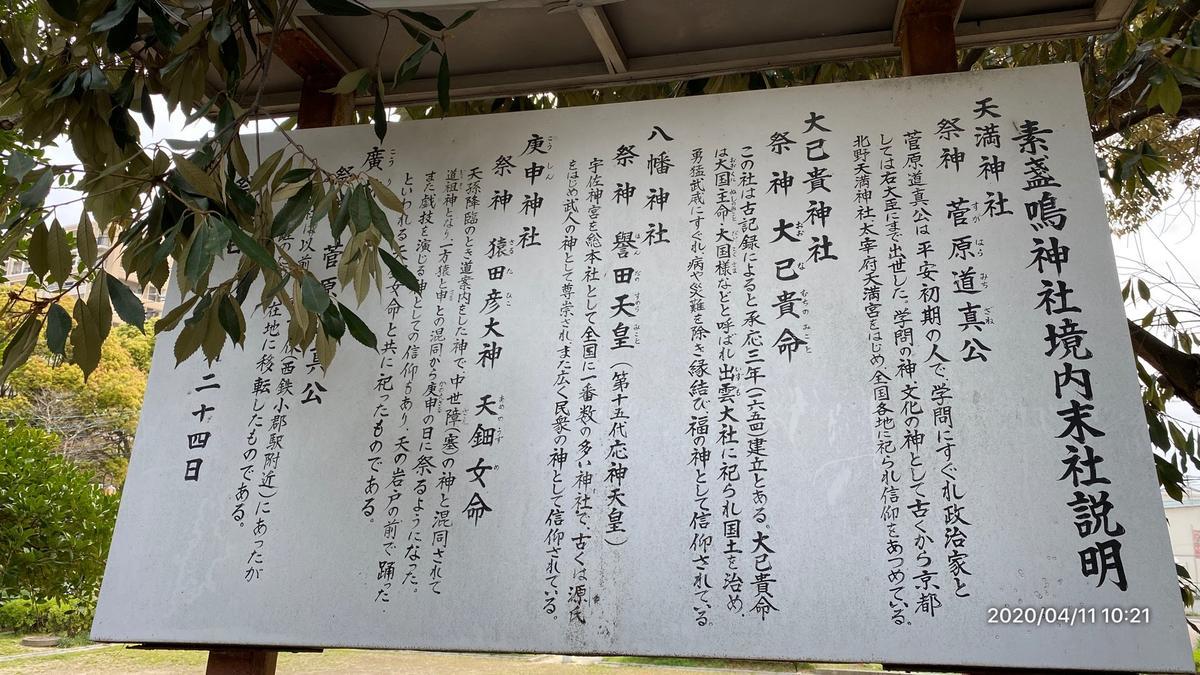 素盞嗚神社境内末社説明
天満神社
祭神 菅原道真公
菅原道真公は平安初期の人で、学問にすぐれ政治家と
しては右大臣にまで出世した。学問の神文化の神として古くから京都
北野天満神社太宰府天満宮をはじめ、全国各地に祀られ信仰をあつめている。
大己貴神社
祭神 大己貴命
この社は古記録によると承応三年(一六五四)建立とある。大己貴命
は大国主命、大国様などと呼ばれ出雲大社に祀られ国土を治め、
勇猛武威にすぐれ病や災難を除き縁結び福の神として信仰されている。
八幡神社
祭神 譽田天皇(第十五代応神天皇)
宇佐神宮を総本社として全国に一番数の多い神社で、古くは源氏
をはじめ武人の神として尊崇され、また広く民衆の神として信仰されている。
庚申神社
祭神 猿田彦大神 天鈿女命
天孫降臨のとき道案内をした神で、中世障(塞)の神と混同されて
道祖神とな 一方猿と申との混同から庚申の日に祭るようになった。
また戯技を演じる神としての信仰もあり、天の岩戸の前で踊った
といわれる天 女命と共に祀ったものである。
廣
祭 菅原 真公
は以前 西鉄小郡駅附近)にあったが
在地に移転したものである。
二十四日
2020/04/11 10:21